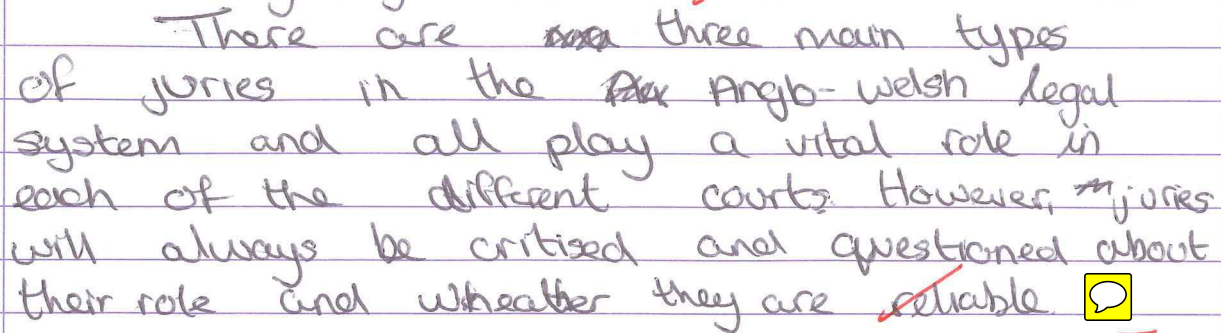 There are three main types
of juries in the Anglo-Welsh legal
system and all play a vital role in
each of the different courts. However, juries
will always be critised and questioned about
their role and wheather they are reliable